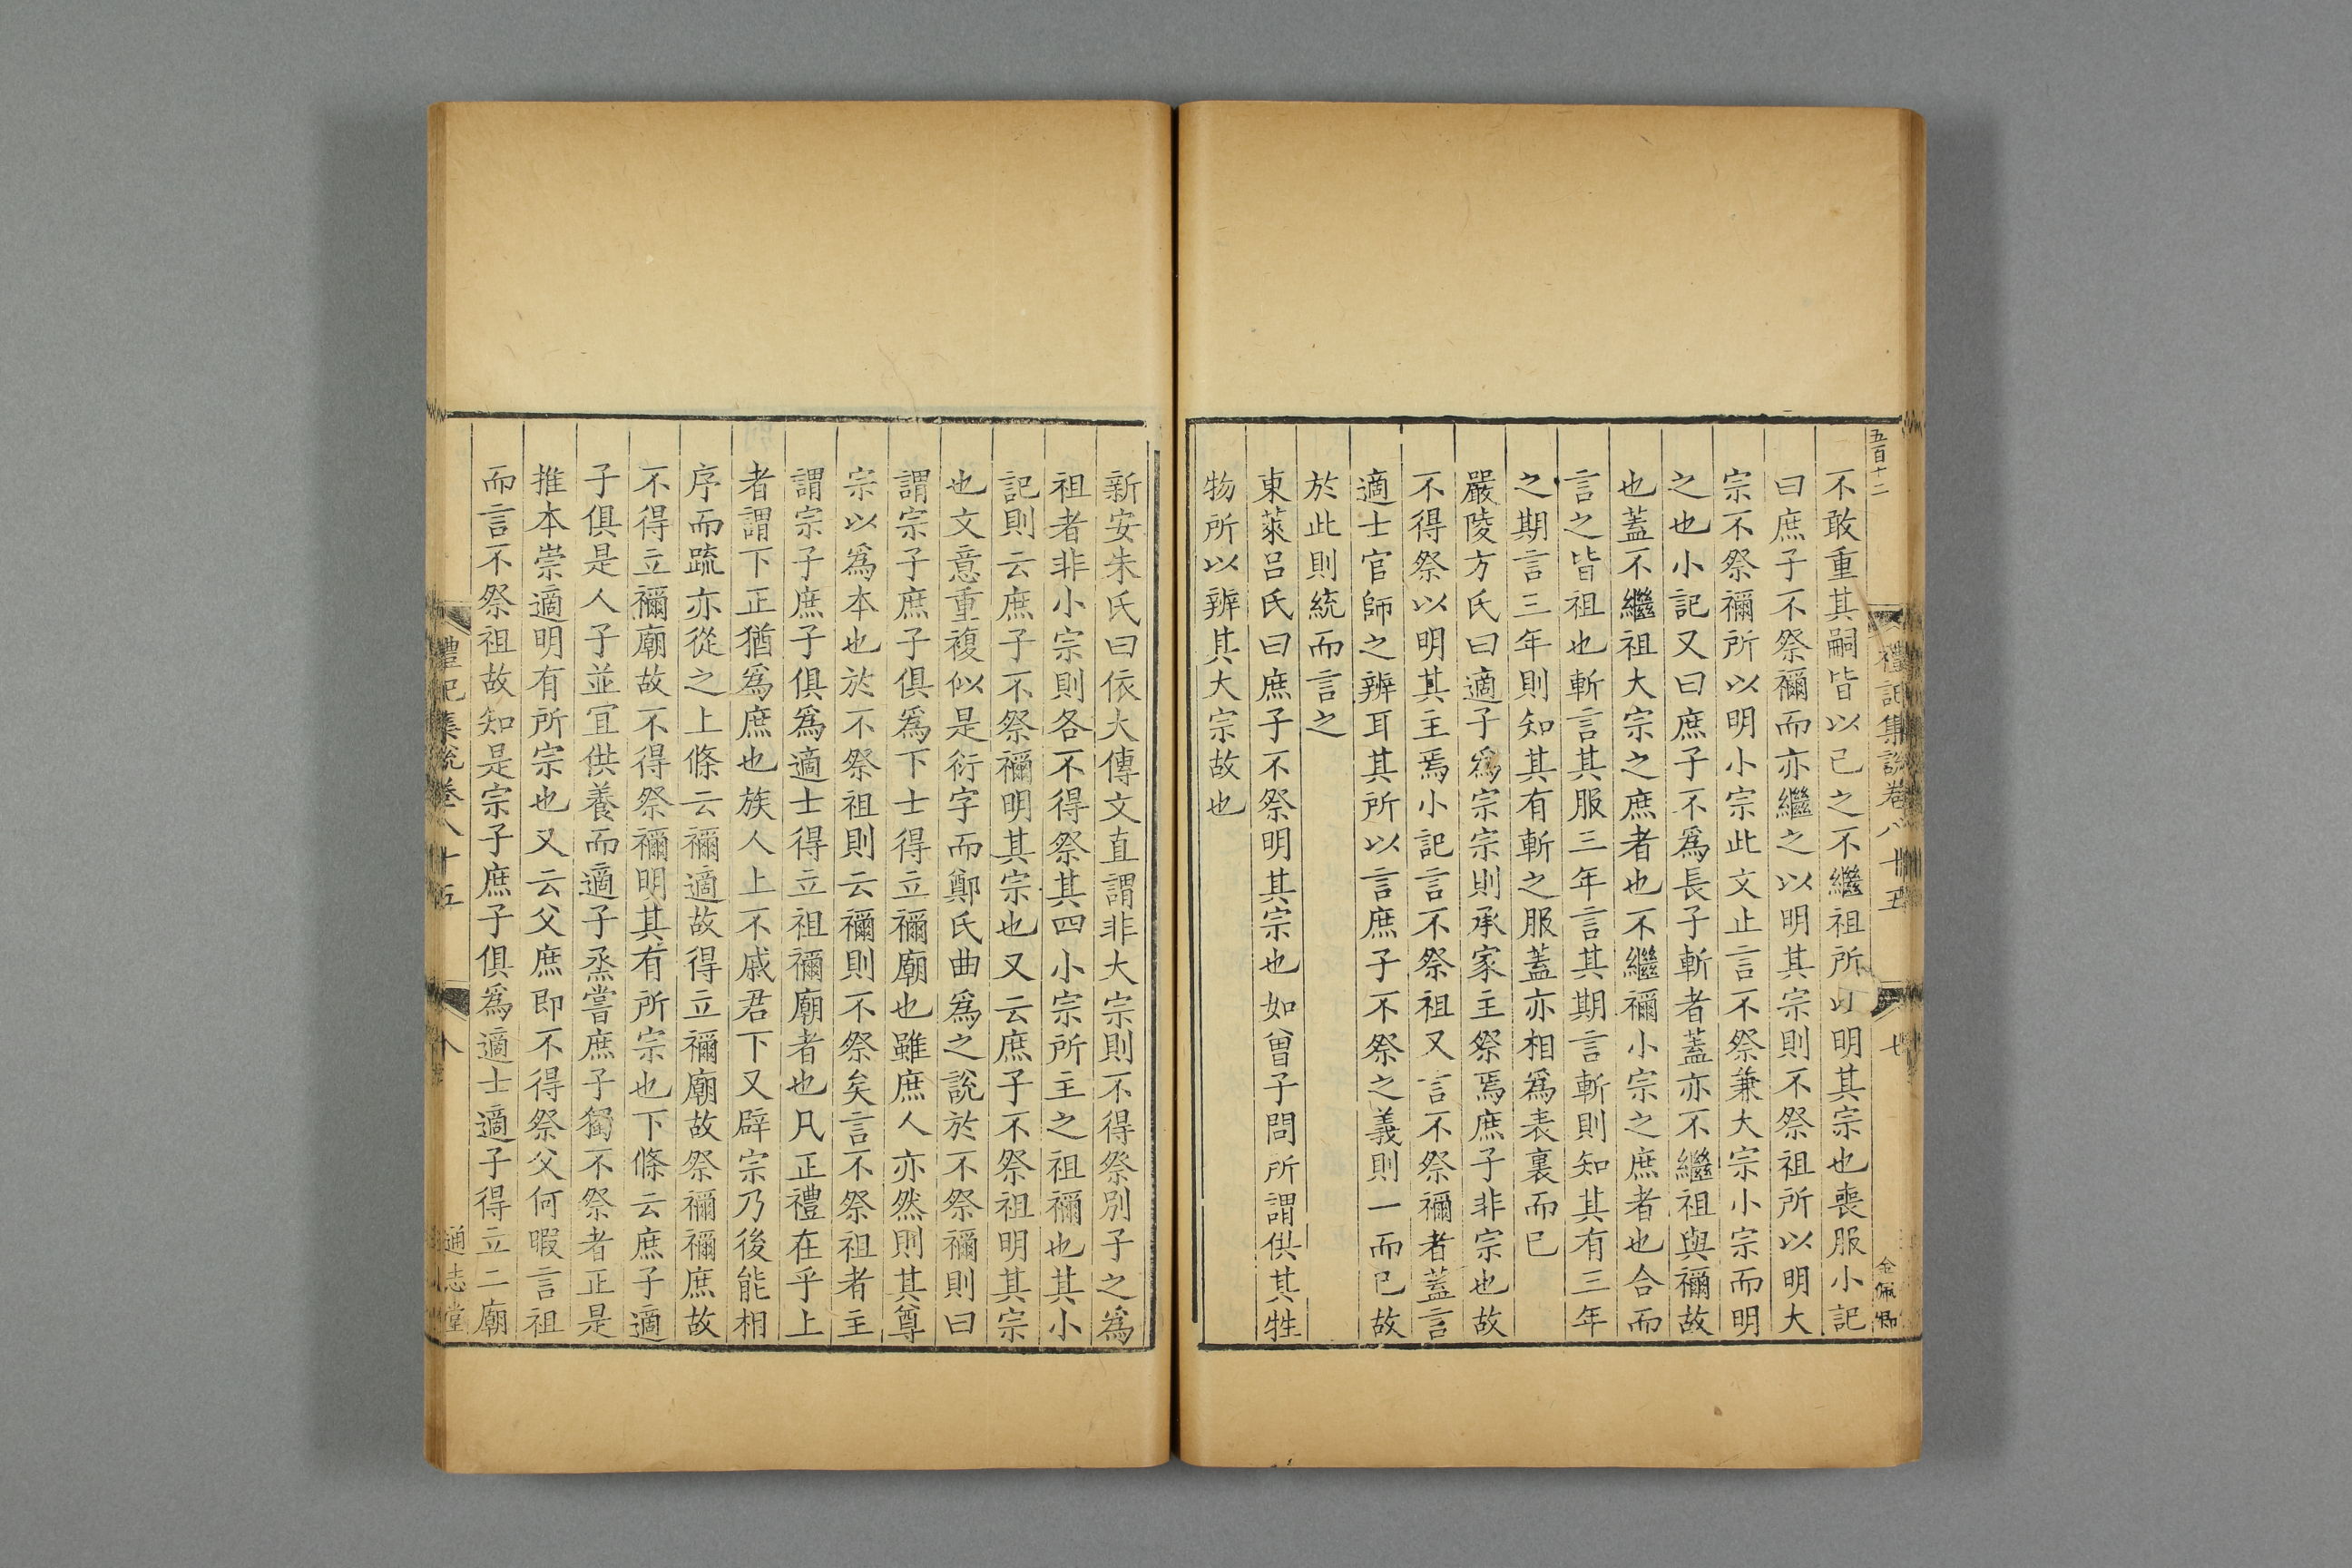 五百十二
禮記集說卷八十五
七
金佩卿
不敢重其嗣皆以己之不繼祖所以明其宗也喪服小記
曰庶子不祭禰而亦繼之以明其宗則不祭祖所以明大
宗不祭禰所以明小宗此文止言不祭兼大宗小宗而明
之也小記又曰庶子不爲長子斬者蓋亦不繼祖與禰故
也蓋不繼祖大宗之庶者也不繼禰小宗之庶者也合而
言之皆祖也斬言其服三年言其期言斬則知其有三年
之期言三年則知其有斬之服蓋亦相爲表裏而已
嚴陵方氏曰適子爲宗宗則承家主祭焉庶子非宗也故
不得祭以明其主焉小記言不祭祖又言不祭禰者蓋言
適士官師之辨耳其所以言庶子不祭之義則一而已故
於此則統而言之
東萊呂氏曰庶子不祭明其宗也如曾子問所謂供其牲
物所以辨其大宗故也
新安朱氏曰依大傳文直謂非大宗則不得祭別子之爲
祖者非小宗則各不得祭其四小宗所主之祖禰也其小
記則云庶子不祭禰明其宗也又云庶子不祭祖明其宗
也文意重複似是衍字而鄭氏曲爲之說於不祭禰則曰
謂宗子庶子俱爲下士得立禰廟也雖庶人亦然則其尊
宗以爲本也於不祭祖則云禰則不祭矣言不祭祖者主
謂宗子庶子俱爲適士得立祖禰廟者也凡正禮在乎上
者謂下正猶爲庶也族人上不戚君下又辟宗乃後能相
序而疏亦從之上條云禰適故得立禰廟故祭禰禰庶故
不得立禰廟故不得祭禰明其有所宗也下條云庶子適
子俱是人子並宜供養而適子烝嘗庶子獨不祭者正是
推本崇適明有所宗也又云父庶即不得祭父何暇言祖
而言不祭祖故知是宗子庶子俱爲適士適子得立二廟
禮記集說卷八十五
八
通志堂